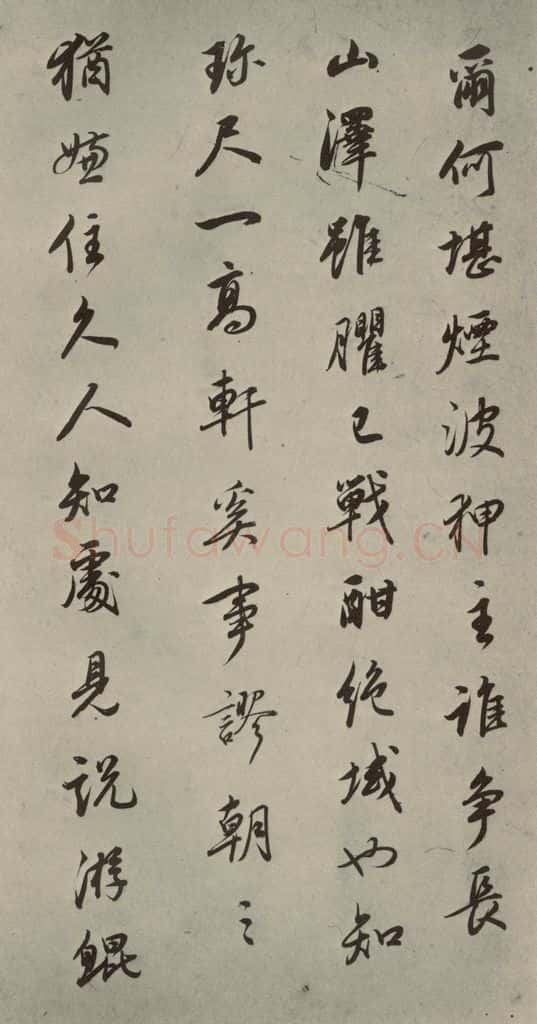 爾何堪煙波狎主誰争長
山澤雖臞已戰酣絶域也知
珎尺一高軒奚事謬朝〻
猶嫌住久人知處見説游鯤
Shufawang.CN